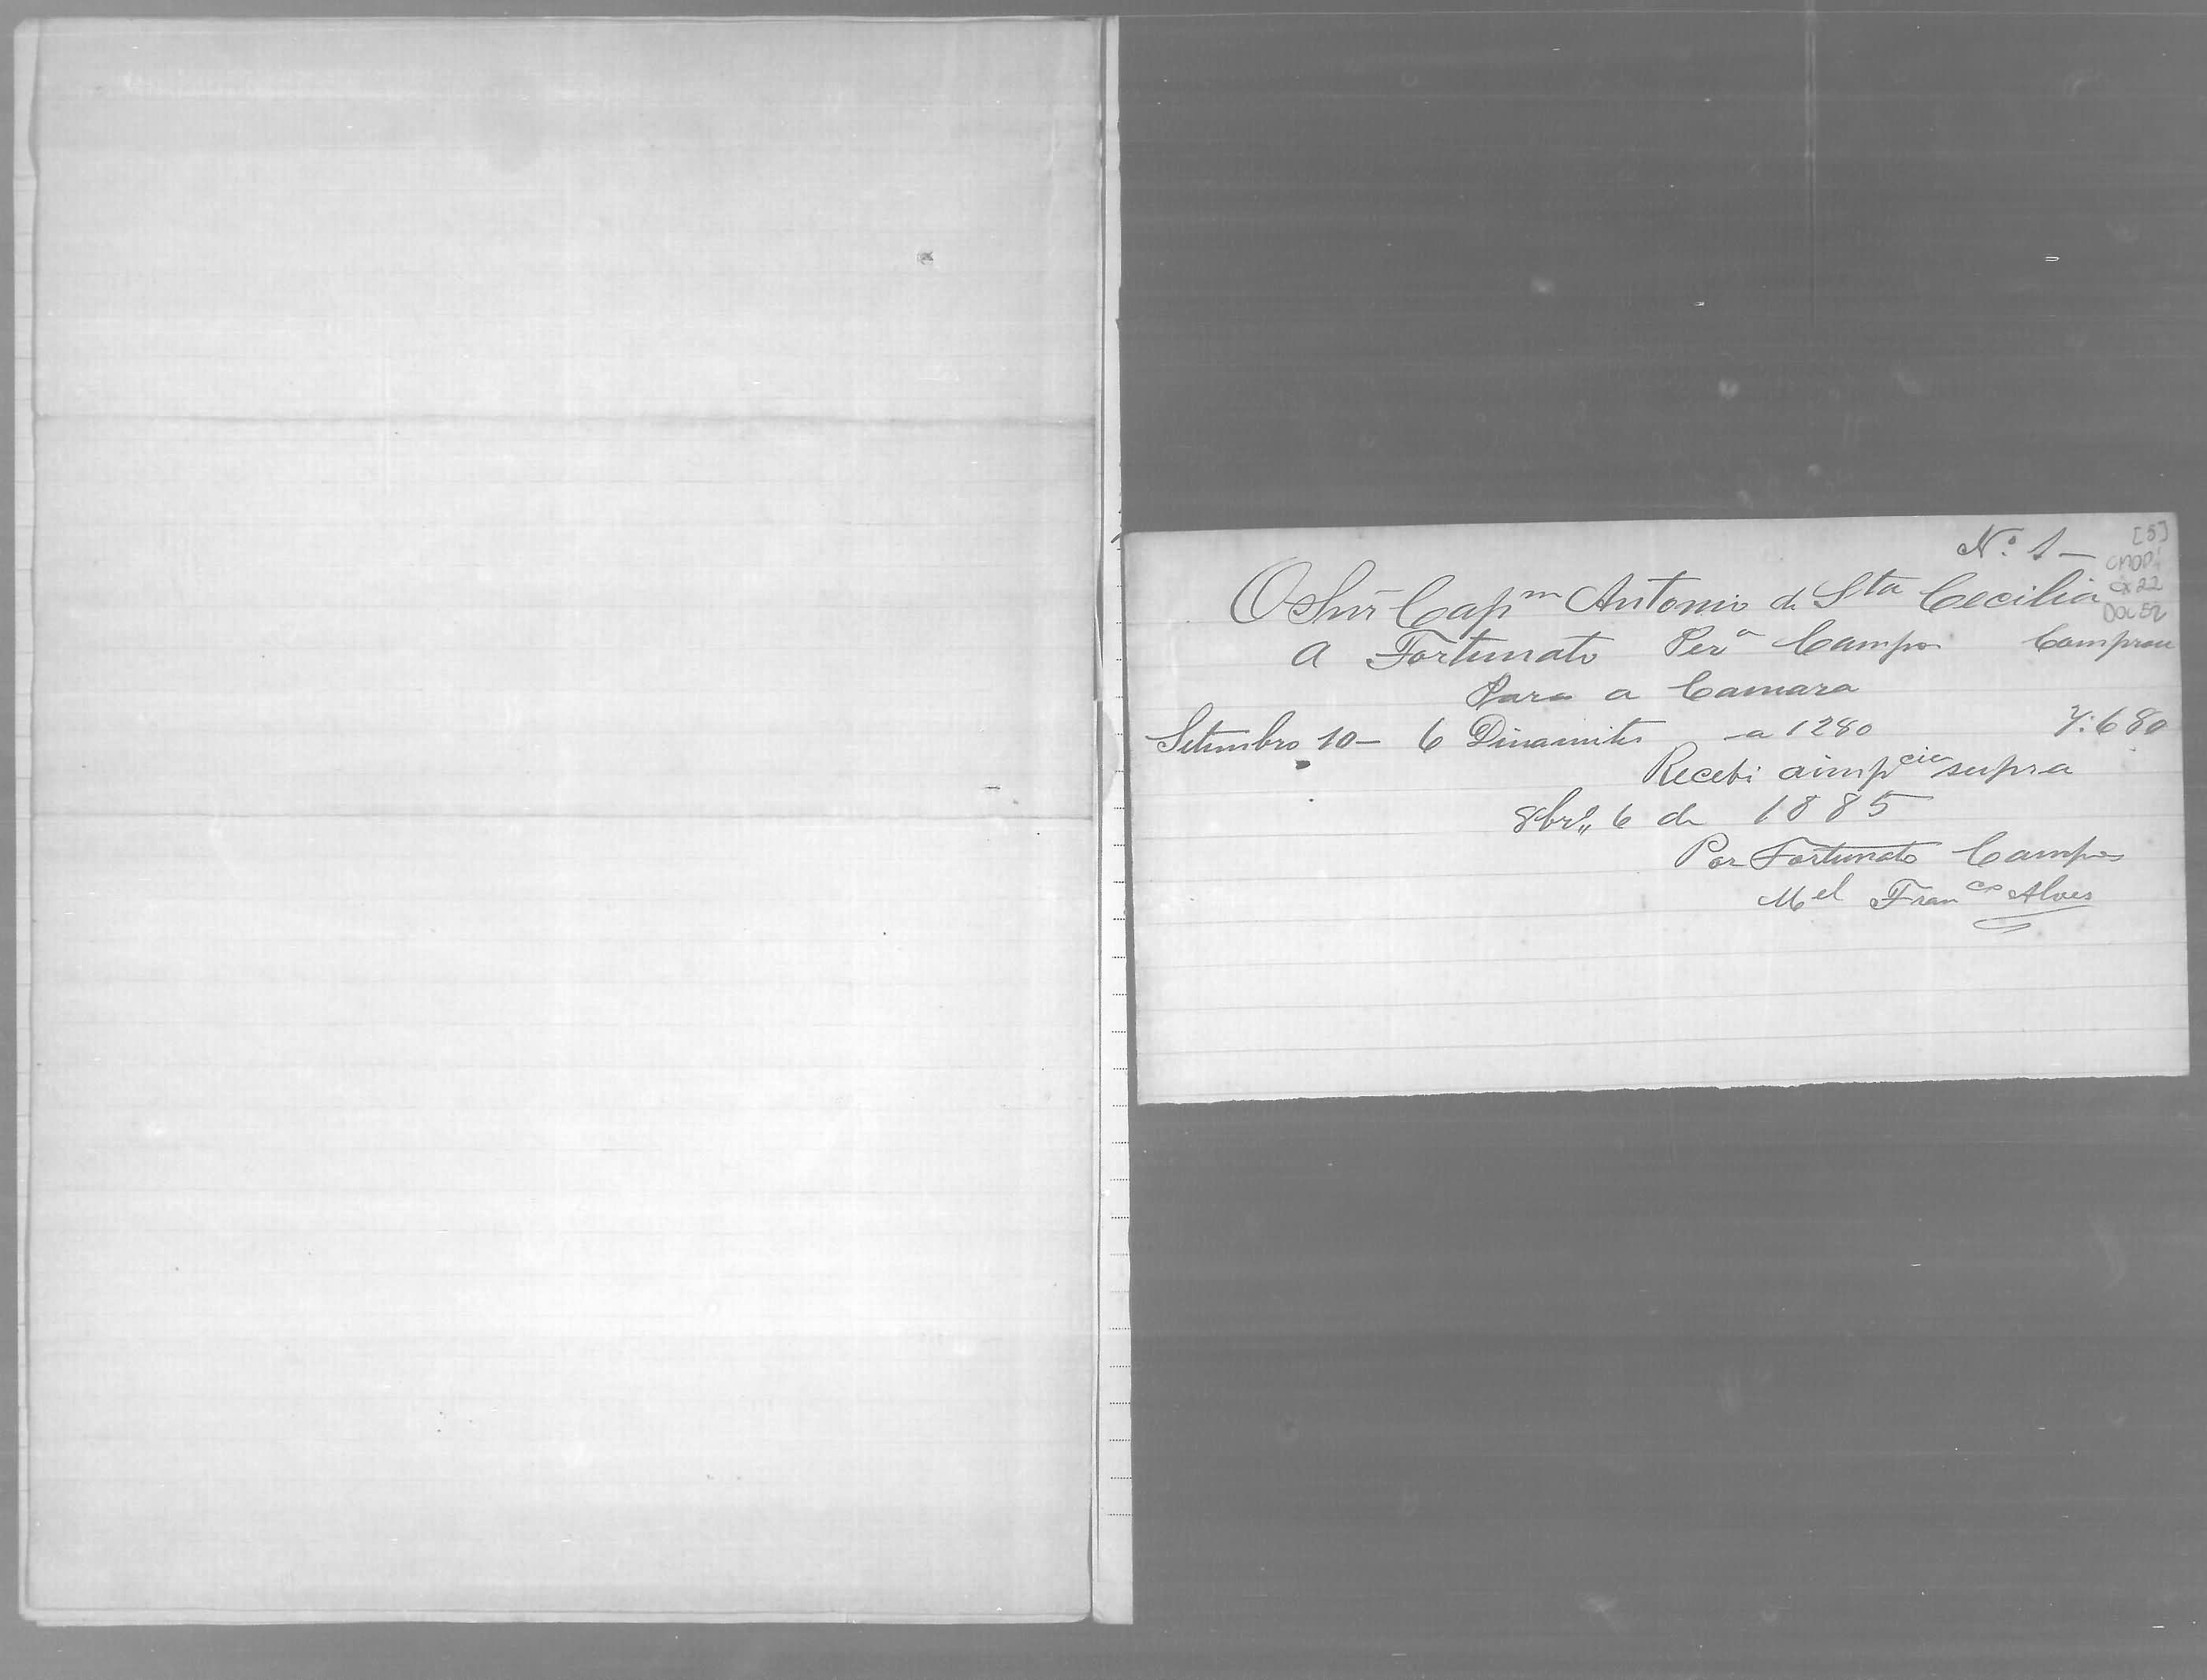 Nº 1 -
[5]
CMOP
Cx 22
DOC 52
O Snr Capm Antonio de Sta Cecilia
a Fortunato Perª Campos Comprou
Para a Camara
Setembro 10 - 6 Dinamites a 1280 7:680
Recebi a impcia supra
8brº 6 de 1885
Por Fortunato Campos
Mel Franco Alves